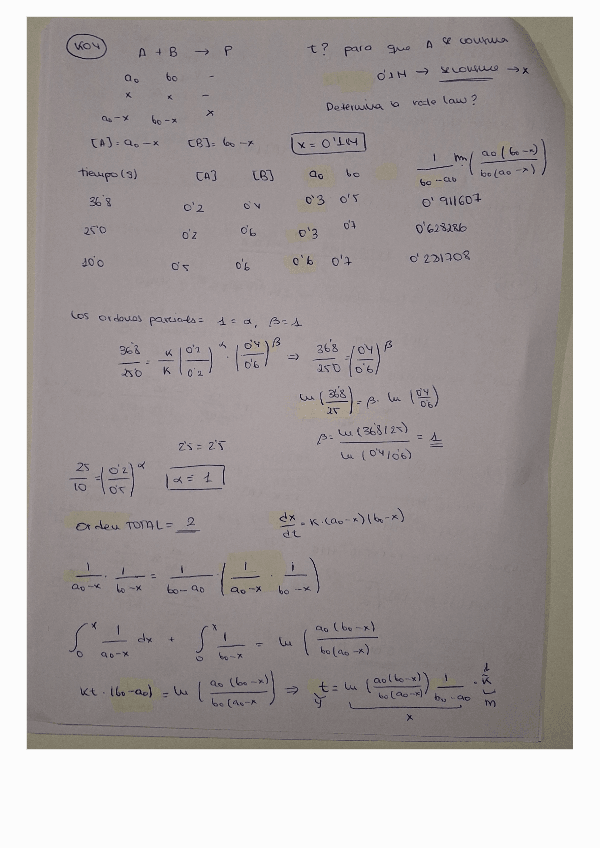 K04
A + B → P t? para que A se consuma
a0 b0 - 0'1M → se consume → x
x x -
a0-x b0-x x Determina la rate law?
[A] = a0-x [B] = b0-x x = 0'1M
tiempo(s) [A] [B] a0 b0 1/(b0-a0) ln (a0(b0-x)/b0(a0-x))
36'8 0'2 0'4 0'3 0'5 0'911607
25'0 0'2 0'6 0'3 0'7 0'628286
10'0 0'5 0'6 0'6 0'7 0'281708
Los ordenes parciales = 1 = α, β = 1
36'8/25'0 = K/K (0'2/0'2)^α · (0'4/0'6)^β ⇒ 36'8/25'0 = (0'4/0'6)^β
ln (36'8/25) = β · ln (0'4/0'6)
2'5 = 2'5 β = ln (36'8/25) / ln (0'4/0'6) = 1
25/10 = (0'2/0'5)^α α = 1
Orden TOTAL = 2 dx/dt = K·(a0-x)(b0-x)
1/(a0-x) · 1/(b0-x) = 1/(b0-a0) · (1/(a0-x) · 1/(b0-x))
∫0^x 1/(a0-x) dx + ∫0^x 1/(b0-x) = ln (a0(b0-x)/b0(a0-x))
Kt·(b0-a0) = ln (a0(b0-x)/b0(a0-x) ⇒ t = ln (a0(b0-x)/b0(a0-x)) 1/(b0-a0) · 1/K
y x m